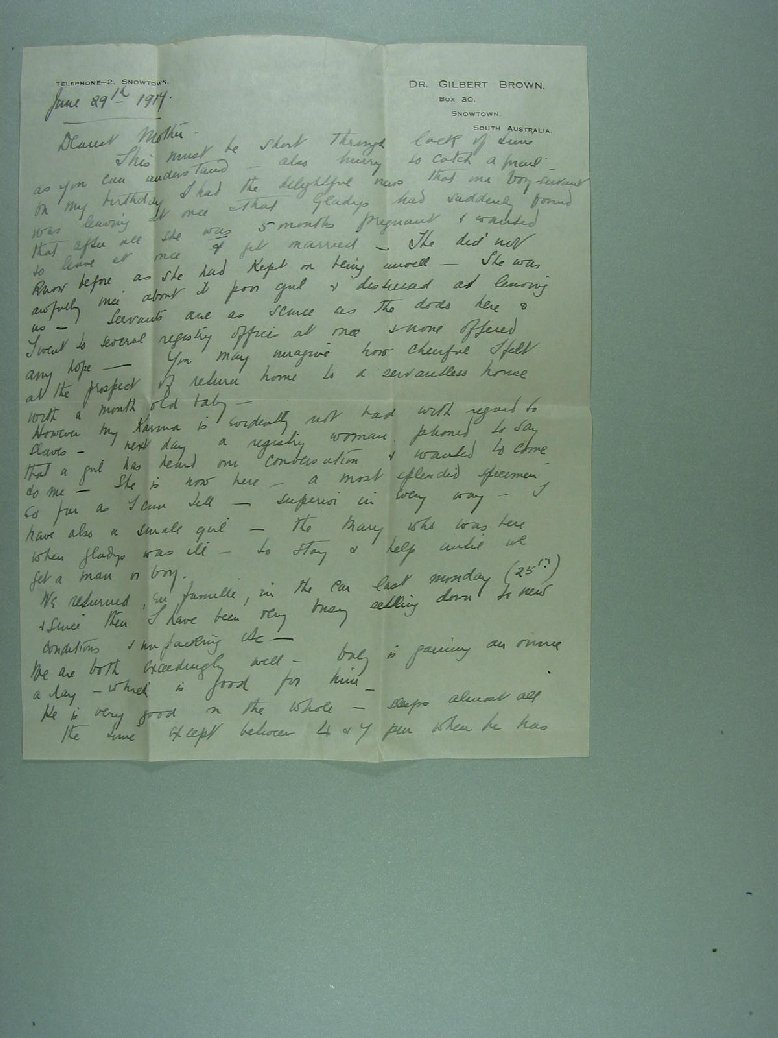 TELEPHONE—2, SNOWTOWN.
DR. GILBERT BROWN.
BOX 30.
SNOWTOWN.
SOUTH AUSTRALIA.
June 29th 1919.
Dearest Mother.
This must be short through lack of time
as you can understand — also hurry to catch a mail —
On my birthday I had the delightful news that our boy servant
was leaving at once & that Gladys had suddenly found
that after all she was 5 months pregnant & wanted
to leave at once & get married — She did not
know before as she had kept on being unwell — She was
awfully nice about it poor girl & distressed at leaving
us — Servants are as scarce as the dodo here &
I went to several registry offices at once & none offered
any hope — You may imagine how cheerful I felt
at the prospect of return home to a servantless house
with a month old baby —
However my Karma is evidently not bad with regard to
slaves — next day a registry woman phoned to say
that a girl has heard our conversation & wanted to come
to me — She is now here — a most splendid specimen
so far as I can tell — superior in every way — I
have also a small girl — the Mary who was here
when Gladys was ill — to stay & help until we
get a man or boy.
We returned, en famille, in the car last Monday (25th)
& since then I have been very busy settling down to new
conditions & unpacking etc —
We are both exceedingly well — baby is gaining an ounce
a day — which is good for him —
He is very good on the whole — sleeps almost all
the time except between 4 & 7 pm when he has